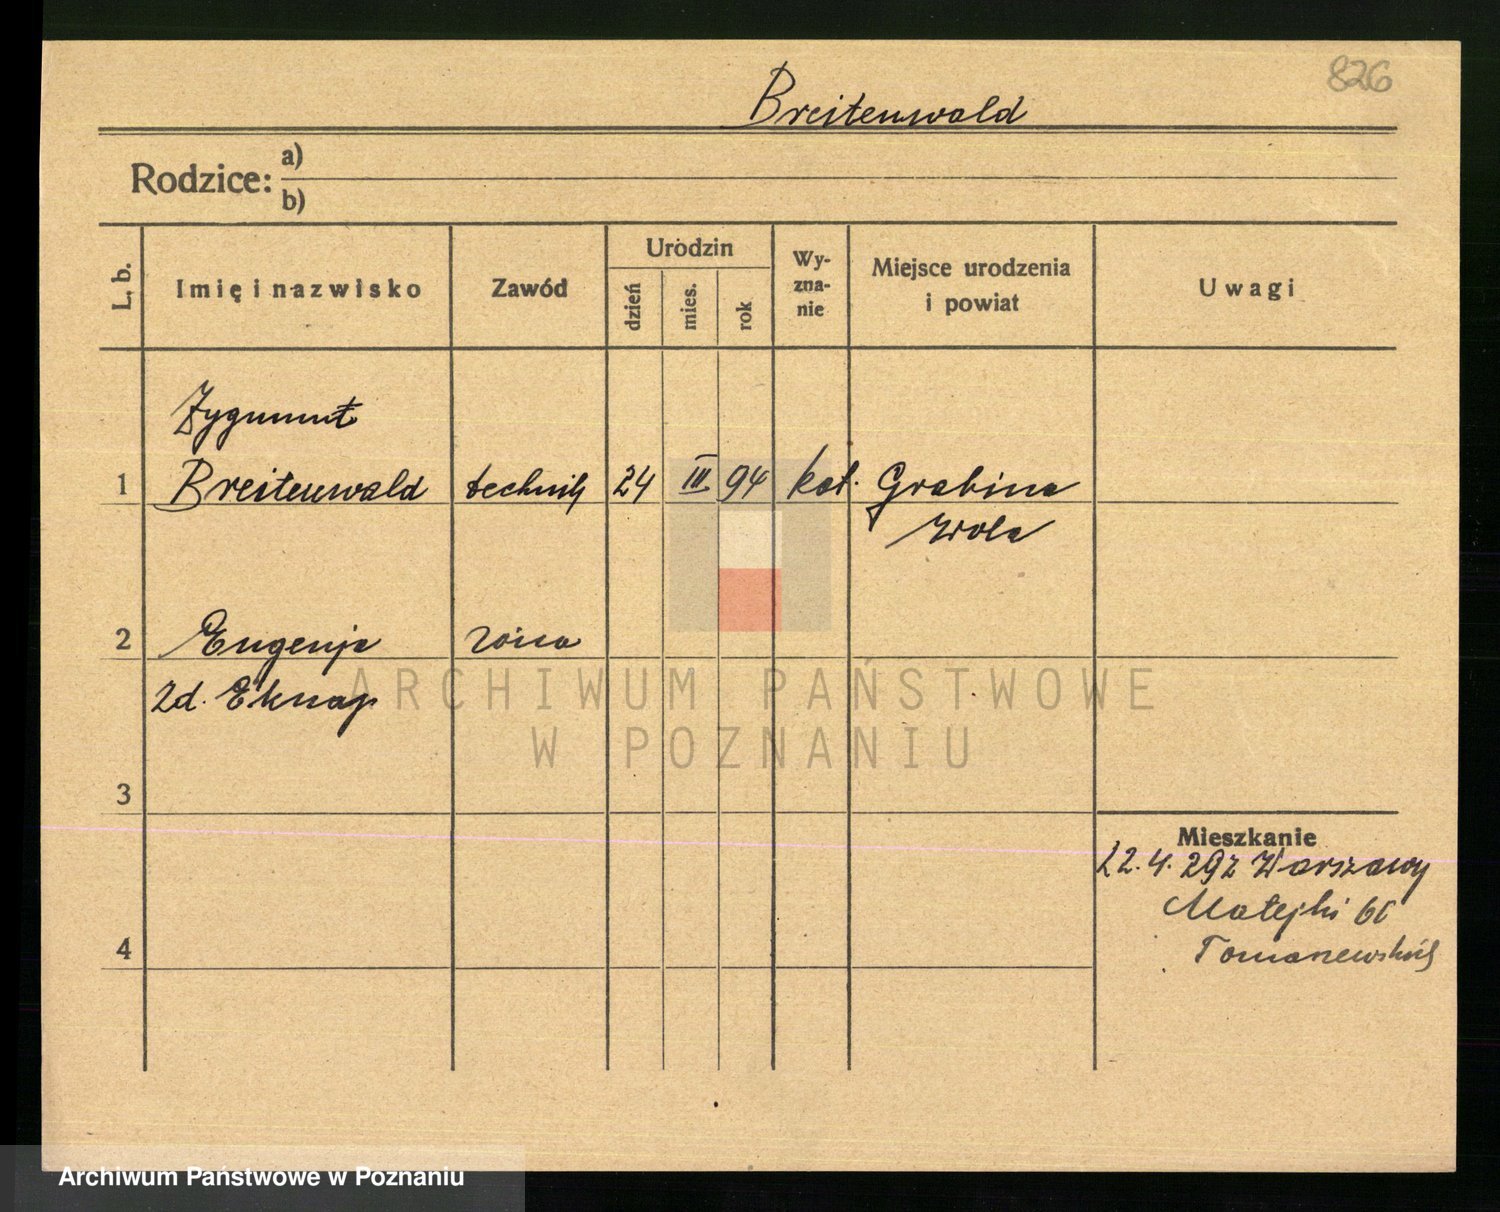 826
Breitenwald
Rodzice: a)
b)
L. b. Imię i nazwisko Zawód Urodzin dzień mies. rok Wy-zna-nie Miejsce urodzenia i powiat Uwagi
Zygmunt
1 Breitenwald technik 24 III 94 kat. Grabina
Wola
2 Eugenja żona
zd. Eknap
ARCHIWUM PAŃSTWOWE
W POZNANIU
3
Mieszkanie
22.4.29 z Warszawy
Matejki
4 Tomaszewskich
Archiwum Państwowe w Poznaniu